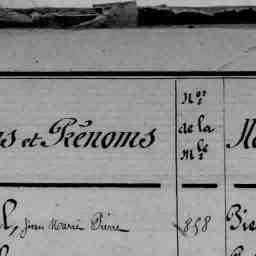 s et Prénoms
Nos
de la
Mle
Jean Marie Pierre 898